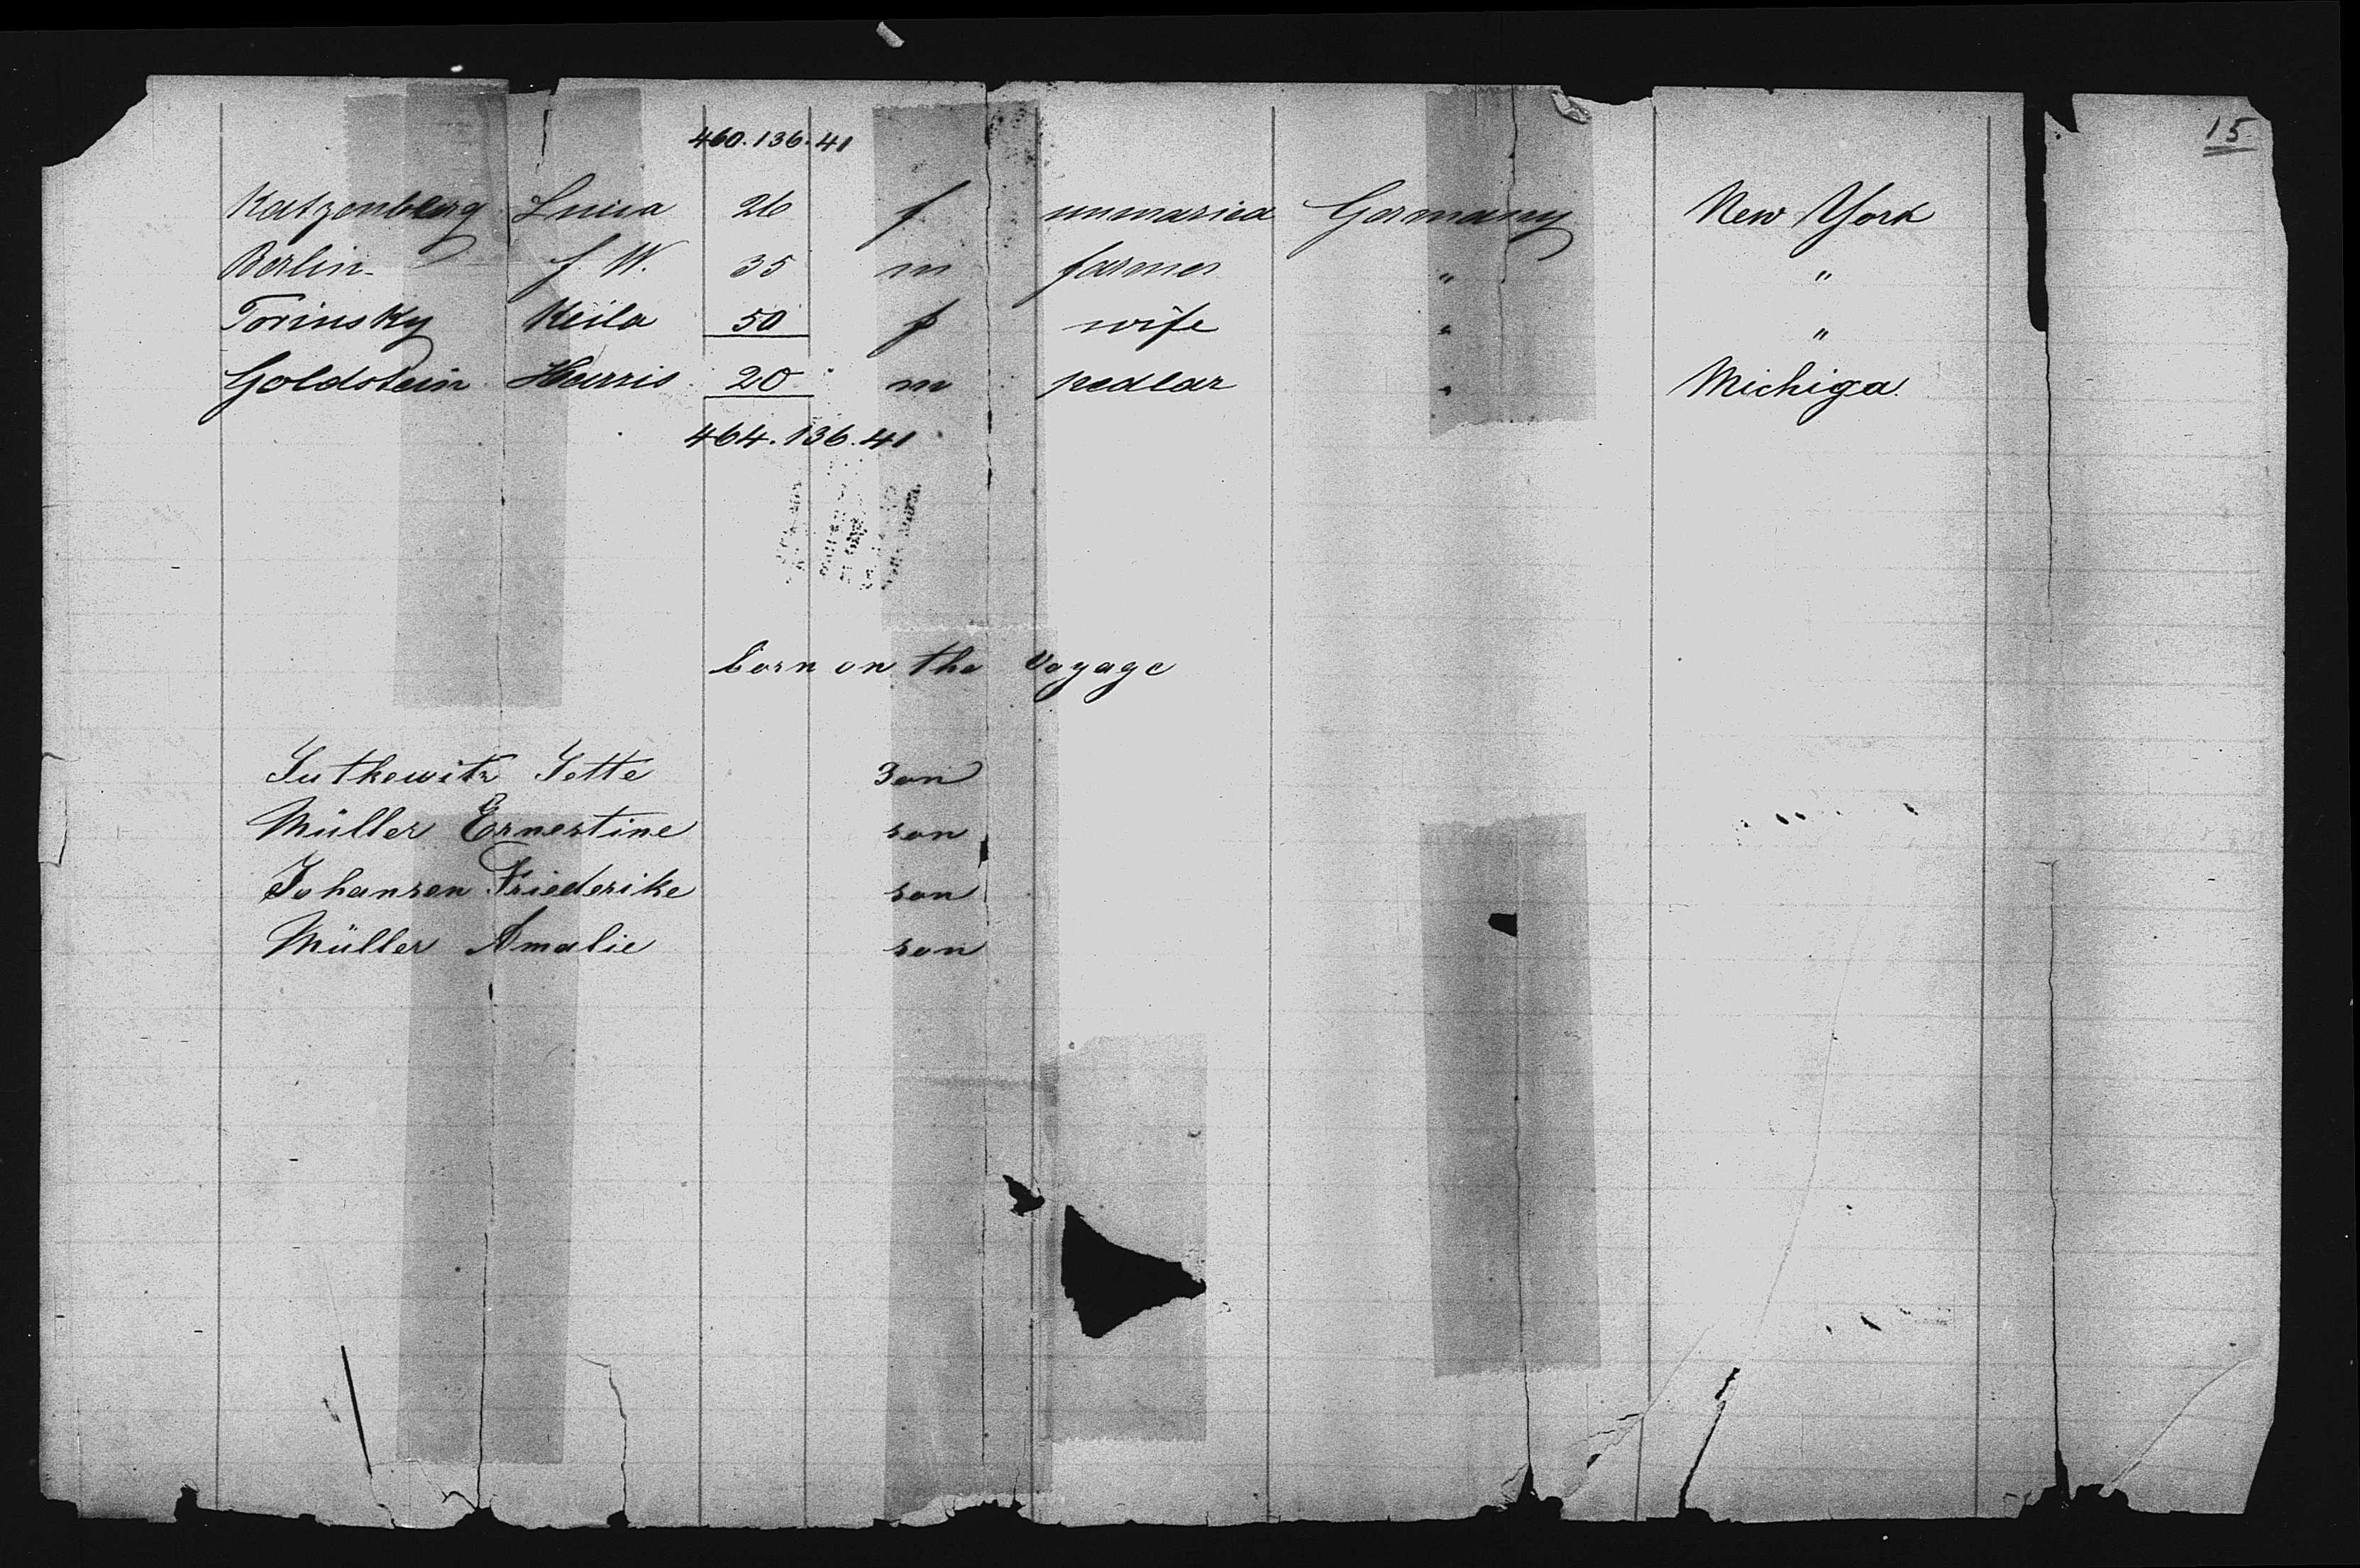 15
460.136.41
Katzenberg Luisa 26 f unmaried Germany New York
Berlin f. W. 35 m farmer " "
Torinsky Keila 50 f wife " "
Goldstein Harris 20 m pedlar " Michiga.
464.136.41
born on the Voyage
Jutkewitz Jette son
Müller Ernestine son
Johansen Friederike son
Müller Amalie son